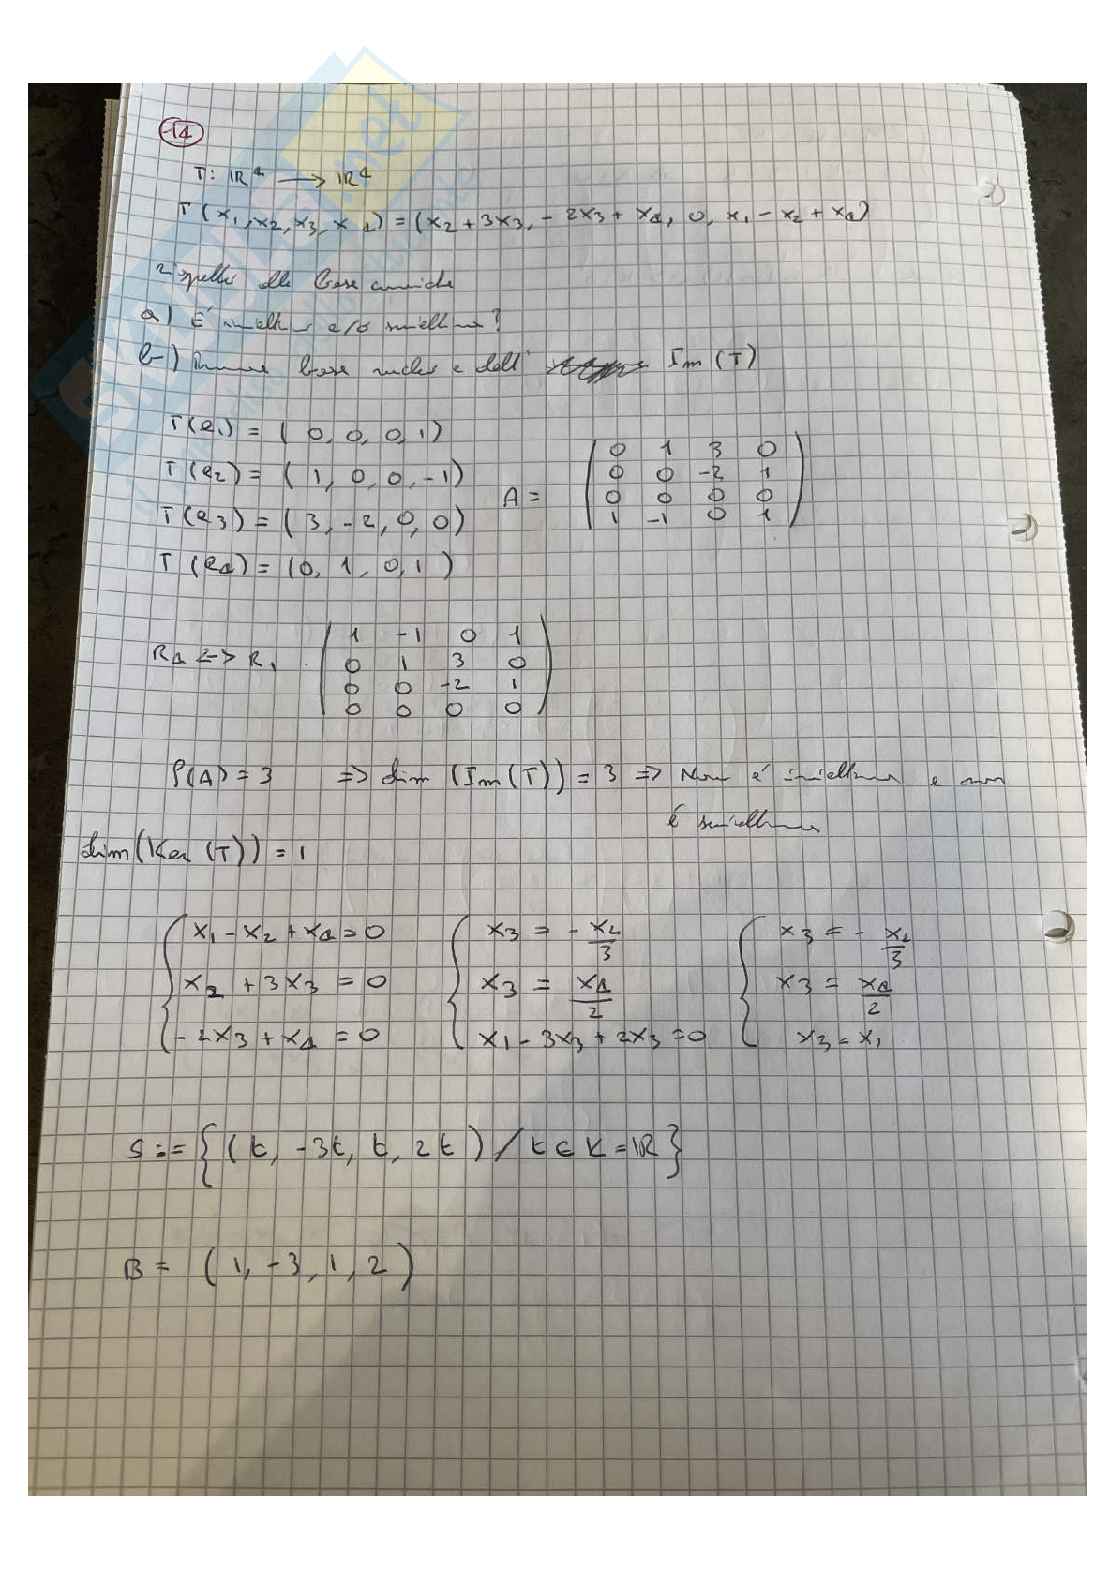 14
T: ℝ⁴ → ℝ⁴
T(x₁, x₂, x₃, x₄) = (x₂ + 3x₃, - 2x₃ + x₄, 0, x₁ - x₂ + x₄)
rispetto alle base canoniche
a) È iniettiva e/o suriettiva?
b) base nucleo e dell' Im(T)
T(e₁) = (0, 0, 0, 1)
T(e₂) = (1, 0, 0, -1)
T(e₃) = (3, -2, 0, 0)
T(e₄) = (0, 1, 0, 1)
A =
0 1 3 0
0 0 -2 1
0 0 0 0
1 -1 0 1
R₄ <-> R₁
1 -1 0 1
0 1 3 0
0 0 -2 1
0 0 0 0
ρ(A) = 3 => dim (Im(T)) = 3 => Non è iniettiva e non
è suriettiva
dim(Ker(T)) = 1
{ x₁ - x₂ + x₄ = 0 { x₃ = - x₂/3 { x₃ = - x₂/3
x₂ + 3x₃ = 0 x₃ = x₄/2 x₃ = x₄/2
- 2x₃ + x₄ = 0 x₁ - 3x₃ + 2x₃ = 0 x₃ = x₁
S := {(t, -3t, t, 2t) / t ∈ K = ℝ}
B = (1, -3, 1, 2)